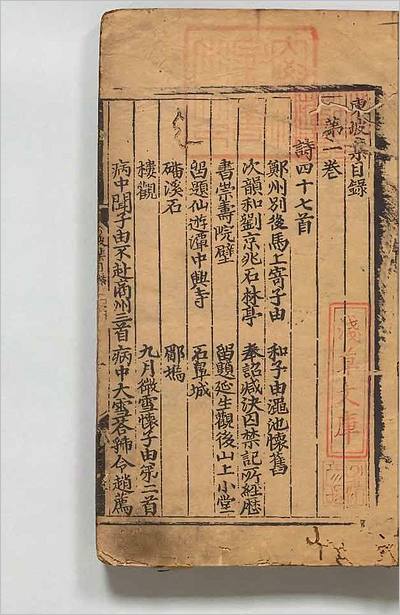 東坡集目録
第一巻
詩四十七首
鄭州別後馬上寄子由 和子由澠池懷舊
次韻和劉京兆石林亭 奉詔減決囚禁記所經歷
書崇壽院壁 留題延生觀後山上小堂
留題仙遊潭中興寺 石鼻城
磻溪石 郿塢
樓觀 九月微雪懷子由弟二首
病中聞子由不赴商州三首 病中大雪答虢令趙薦
淺草文庫